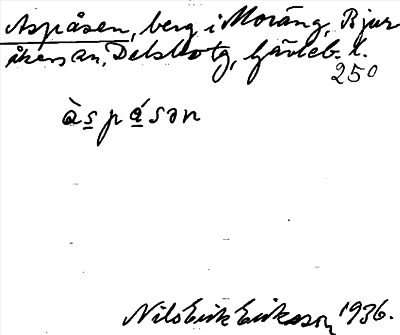 Aspåsen, berg i Moräng, Bjur
åkers sn, Delsbo tg, Gävleb. l.
250
àspåsən
Nils Erik Eriksson 1936.